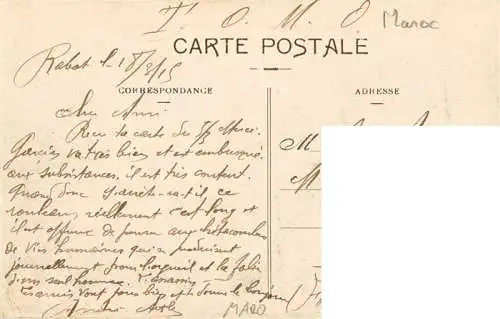 T. O. M. O
Maroc
CARTE POSTALE
Rabat le 18/3/15
CORRESPONDANCE
ADRESSE
Cher Ami
Reçu ta carte du Merci.
Garcies va très bien et est embusqué
aux subsistances, il est très content.
Quand donc s'arrêtera-t-il ce
réellement c'est long et
il est affreux de penser aux hécatombes
de vies humaines qui se produisent
journellement pour l'orgueil et la folie
d'un seul homme.
vont tous bien et te donne le bonjour
MARO